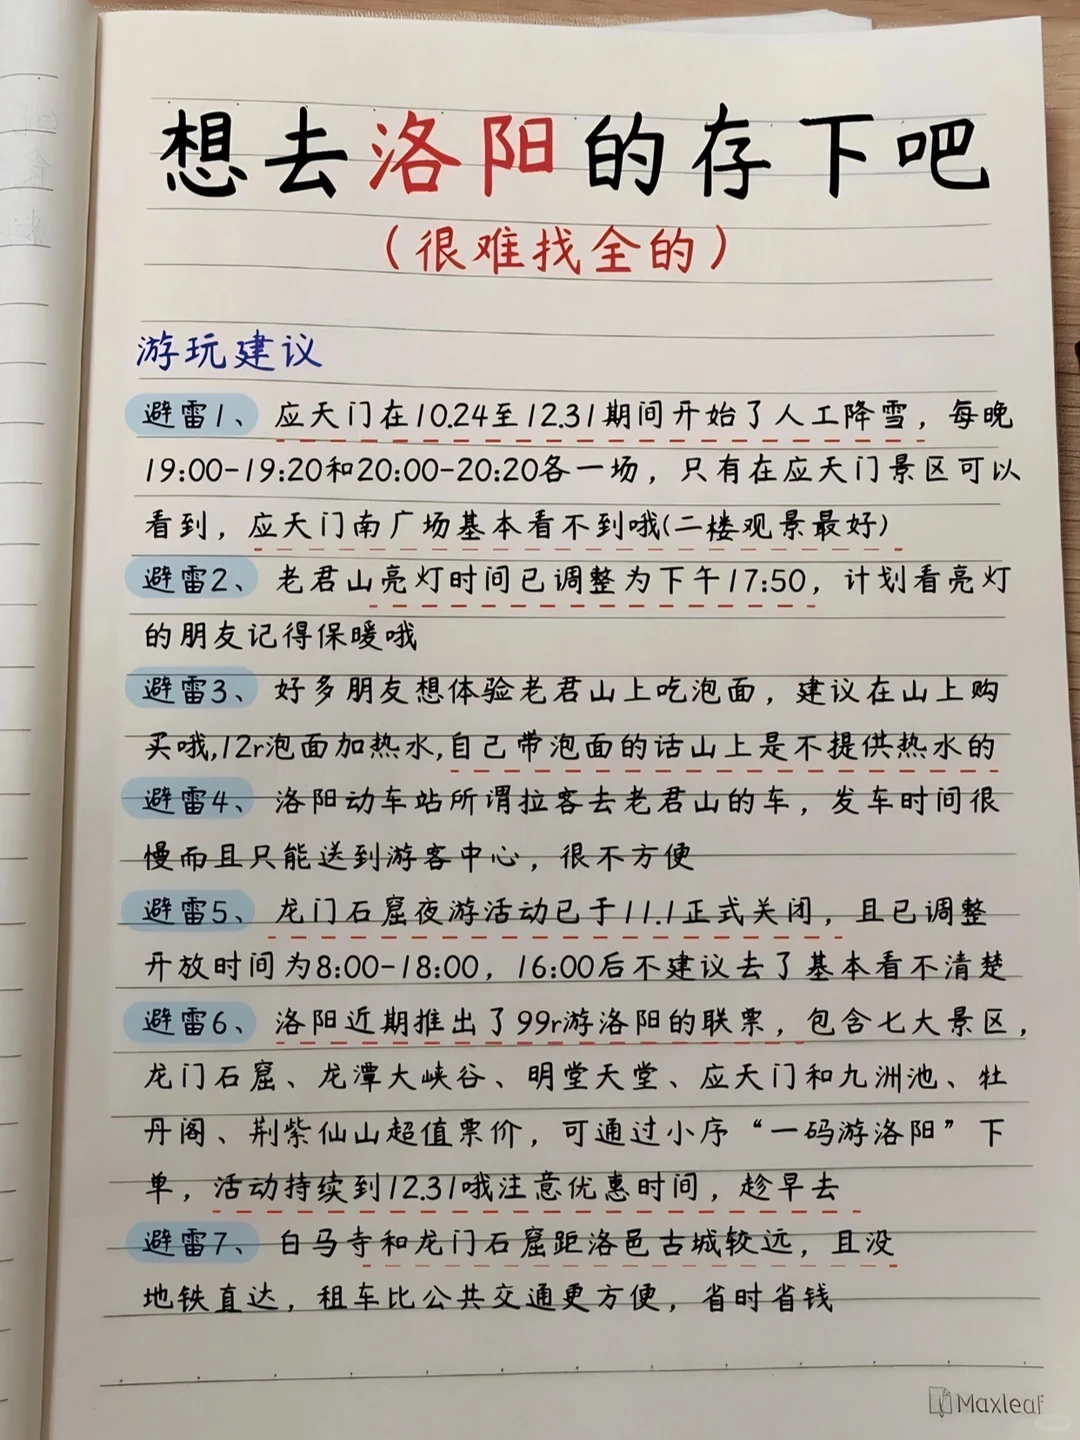 想去洛阳的存下吧
（很难找全的）
游玩建议
避雷1、应天门在10.24至12.31期间开始了人工降雪，每晚
19:00-19:20和20:00-20:20各一场，只有在应天门景区可以
看到，应天门南广场基本看不到哦(二楼观景最好)
避雷2、老君山亮灯时间已调整为下午17:50，计划看亮灯
的朋友记得保暖哦
避雷3、好多朋友想体验老君山上吃泡面，建议在山上购
买哦,12r泡面加热水,自己带泡面的话山上是不提供热水的
避雷4、洛阳动车站所谓拉客去老君山的车，发车时间很
慢而且只能送到游客中心，很不方便
避雷5、龙门石窟夜游活动已于11.1正式关闭，且已调整
开放时间为8:00-18:00，16:00后不建议去了基本看不清楚
避雷6、洛阳近期推出了99r游洛阳的联票，包含七大景区，
龙门石窟、龙潭大峡谷、明堂天堂、应天门和九洲池、牡
丹阁、荆紫仙山超值票价，可通过小序“一码游洛阳”下
单，活动持续到12.31哦注意优惠时间，趁早去
避雷7、白马寺和龙门石窟距洛邑古城较远，且没
地铁直达，租车比公共交通更方便，省时省钱
Maxleaf